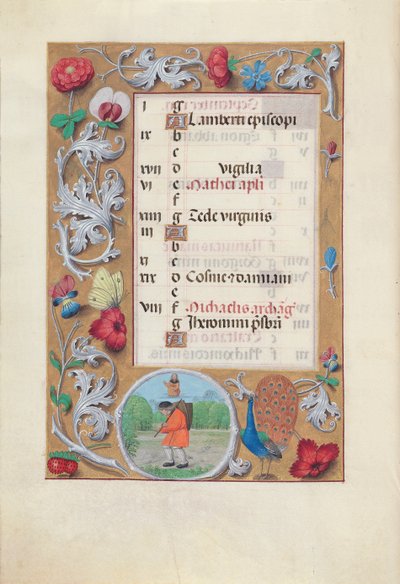 i g
A Lamberti episcopi
ix b
c
xvii d vigilia
vi e Mathei apli
f
xiiii g Tecle virginis
iii A
b
xi c
xix d Cosme ⁊ damiani
e
viii f Michaelis archāg
g Jheronimi p̄sbri
A